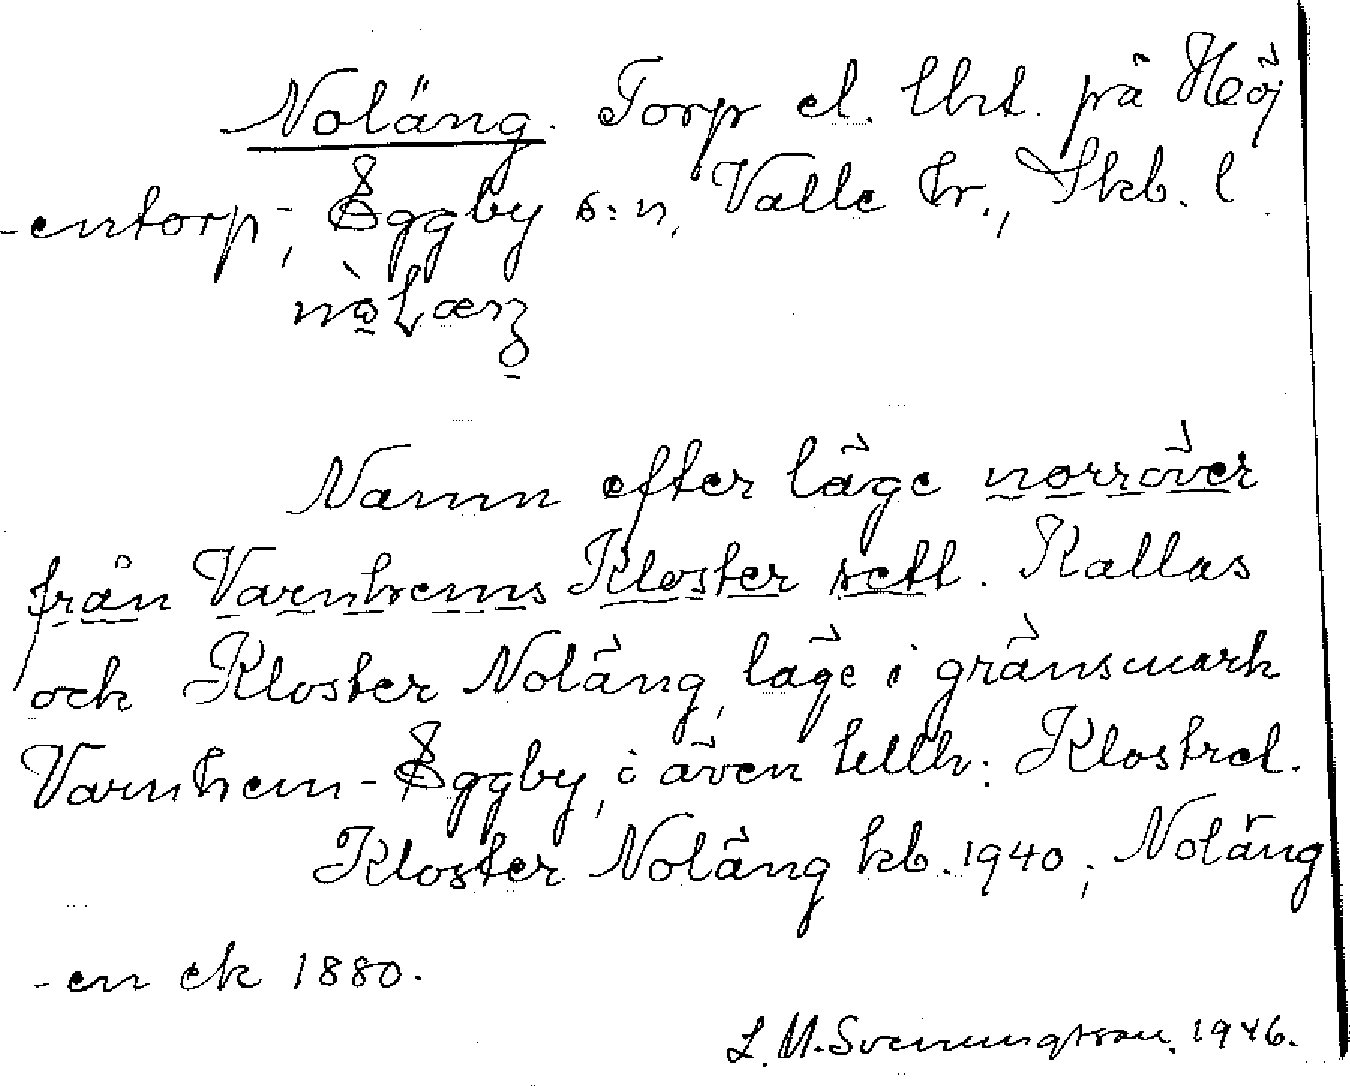 Noläng. Torp el. lht. på Höj
-entorp, Eggby s:n, Valle hr., Skb. l.
Namn efter läge norröver
från Varnhems Kloster sett. Kallas
och Kloster Noläng, läge i gränsmark
Varnhem-Eggby, i även tillh: Klostret.
Kloster Noläng kb. 1940, Noläng
-en ek 1880.
L. M. Svenungsson. 1946.